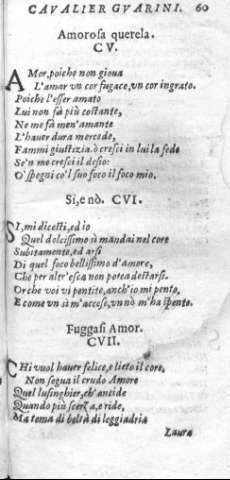 CAVALIER GVARINI. 60
Amorosa querela.
CV.
AMor, poiche non gioua
L'amar vn cor fugace, vn cor ingrato.
Poiche l'esser amato
Lui non fà più costante,
Ne me fà men'amante
L'hauer dura mercede,
Fammi giustizia. ò cresci in lui la fede
Se'n me cresci il desio:
O' spegni co'l suo foco il foco mio.
Si, e nò. CVI.
SI, mi dicesti, ed io
Quel dolcissimo sì mandai nel core
Subitamente, ed arsi
Di quel foco bellissimo d'amore,
Che per altr'esca non potea destarsi.
Or che voi vi pentite, anch'io mi pento,
E come vn sì m'accese, vn nò m'ha spento.
Fuggasi Amor.
CVII.
CHi vuol hauer felice, e lieto il core,
Non segua il crudo Amore
Quel lusinghier, ch'ancide
Quando più scerza, e ride,
Ma tema di beltà di leggiadria
Laura